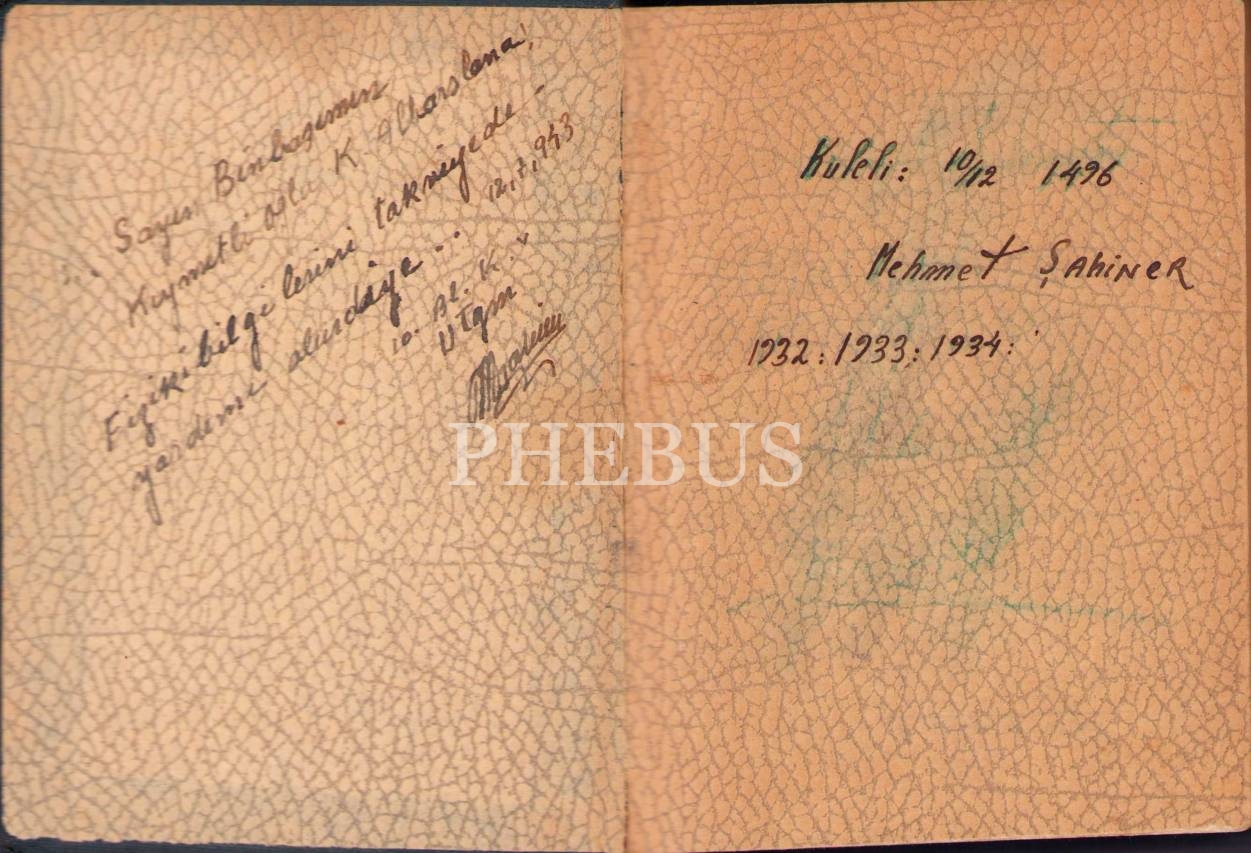 Sayın Binbaşımın
Kıymetli oğlu K. Alkarslana,
Fizik bilgilerini takviyede
yardımı olur diye
12.7.943
10. Al. K. v
Ütğm
Kuleli: 10/12 1496
Mehmet ŞAHiNER
1932: 1933: 1934:
PHEBUS